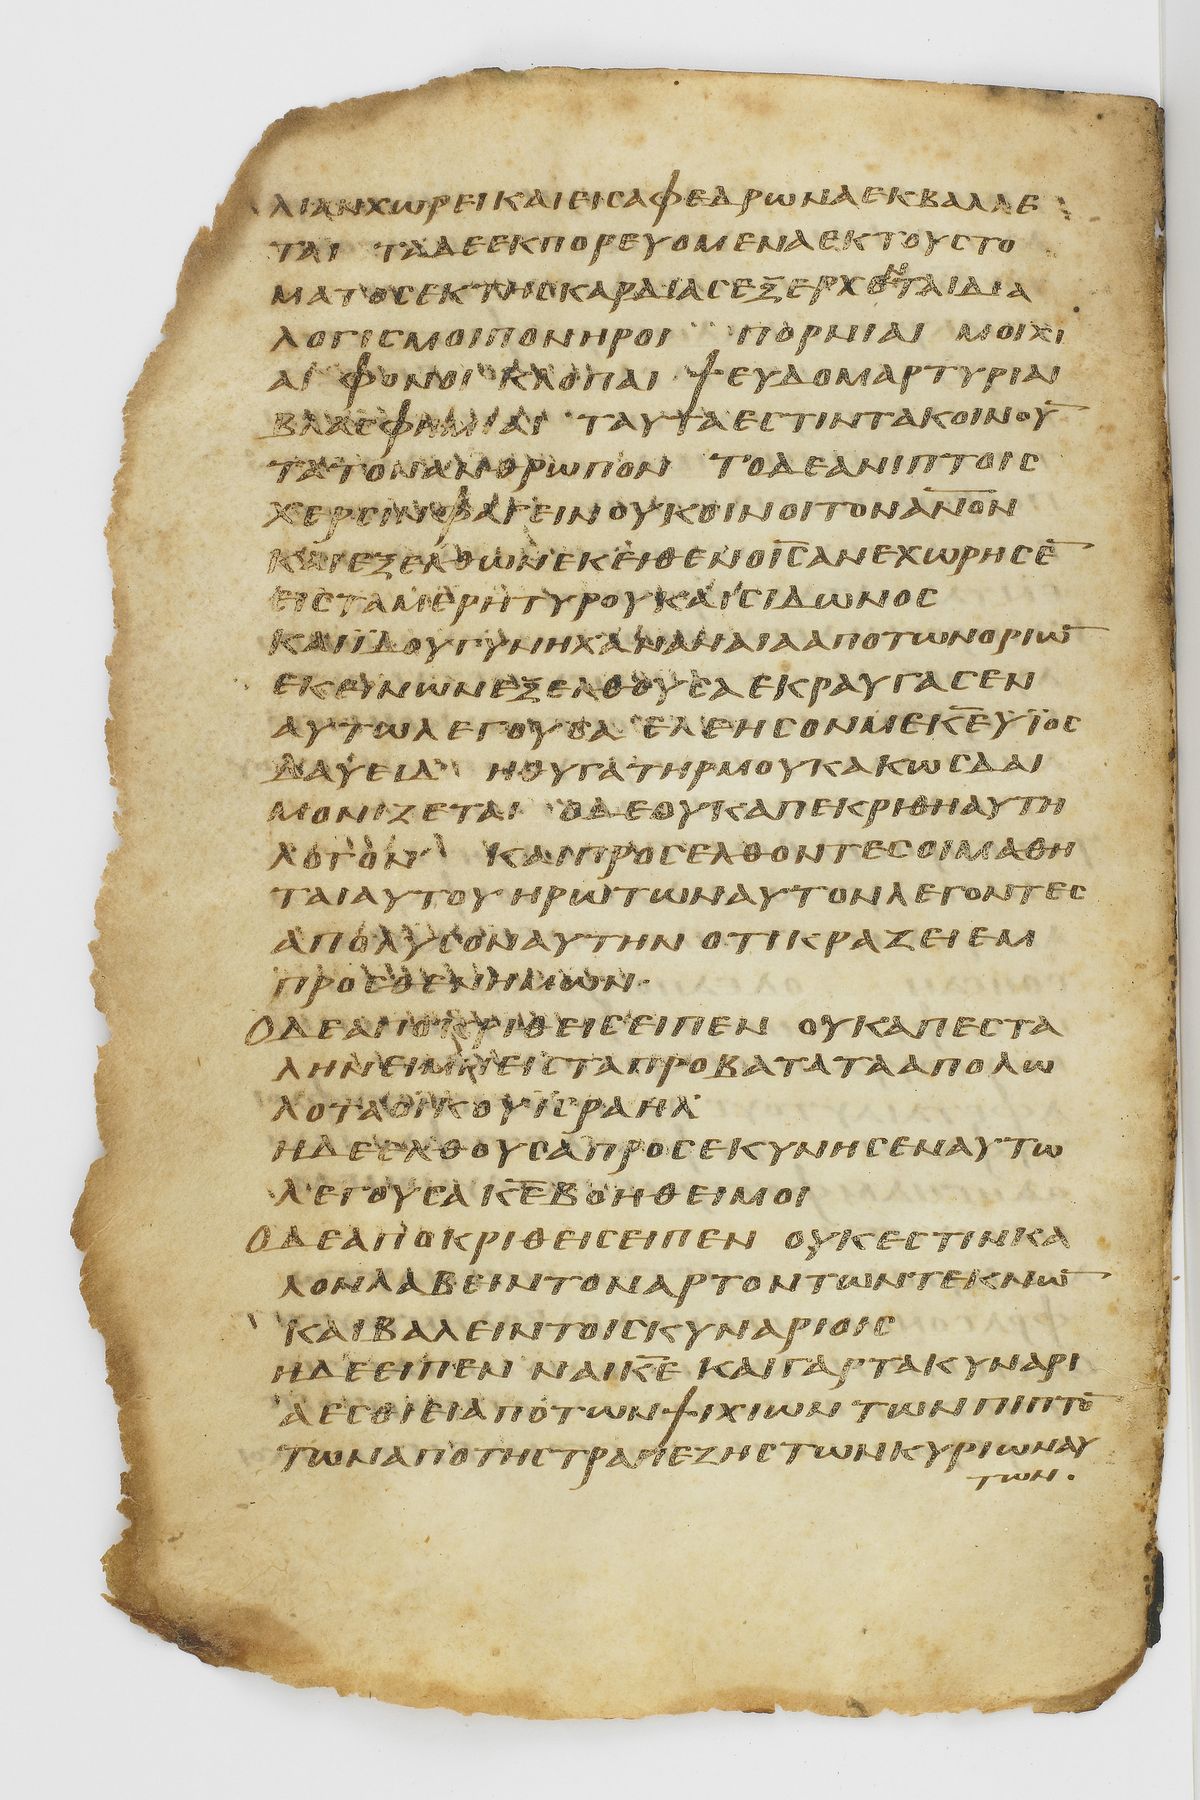 ΛΙΑΝΧΩΡΕΙΚΑΙΕΙCΑΦΕΔΡΩΝΑΕΚΒΑΛΛΕ
ΤΑΙ ΤΑΔΕΕΚΠΟΡΕΥΟΜΕΝΑΕΚΤΟΥCΤΟ
ΜΑΤΟCΕΚΤΗCΚΑΡΔΙΑCΕΞΕΡΧΟΝΤΑΙΔΙΑ
ΛΟΓΙCΜΟΙΠΟΝΗΡΟΙ ΠΟΡΝΙΑΙ ΜΟΙΧΙ
ΑΙ ΦΟΝΟΙ ΚΛΟΠΑΙ ΨΕΥΔΟΜΑΡΤΥΡΙΑΙ
ΒΛΑCΦΗΜΙΑΙ ΤΑΥΤΑΕCΤΙΝΤΑΚΟΙΝΟΥ̅
ΤΑΤΟΝΑΝΘΡΩΠΟΝ ΤΟΔΕΑΝΙΠΤΟΙC
ΧΕΡCΙΝΦΑΓΕΙΝΟΥΚΟΙΝΟΙΤΟΝΑ̅Ν̅Ο̅Ν
ΚΑΙΕΞΕΛΘΩΝΕΚΕΙΘΕΝΟΙ̅C̅ΑΝΕΧΩΡΗCΕ̅
ΕΙCΤΑΜΕΡΗΤΥΡΟΥΚΑΙCΙΔΩΝΟC
ΚΑΙΙΔΟΥΓΥΝΗΧΑΝΑΝΑΙΑΑΠΟΤΩΝΟΡΙΩ̅
ΕΚΕΙΝΩΝΕΞΕΛΘΟΥCΑΕΚΡΑΥΓΑCΕΝ
ΑΥΤΩΛΕΓΟΥCΑ ΕΛΕΗCΟΝΜΕΚ̅Ε̅ΥΪΟC
ΔΑΥΕΙΔ ΗΘΥΓΑΤΗΡΜΟΥΚΑΚΩCΔΑΙ
ΜΟΝΙΖΕΤΑΙ ΟΔΕΟΥΚΑΠΕΚΡΙΘΗΑΥΤΗ
ΛΟΓΟΝ ΚΑΙΠΡΟCΕΛΘΟΝΤΕCΟΙΜΑΘΗ
ΤΑΙΑΥΤΟΥΗΡΩΤΩΝΑΥΤΟΝΛΕΓΟΝΤΕC
ΑΠΟΛΥCΟΝΑΥΤΗΝΟΤΙΚΡΑΖΕΙΕΜ
ΠΡΟCΘΕΝΗΜΩΝ.
ΟΔΕΑΠΟΚΡΙΘΕΙCΕΙΠΕΝ ΟΥΚΑΠΕCΤΑ
ΛΗΝΕΙΜΗΕΙCΤΑΠΡΟΒΑΤΑΤΑΑΠΟΛΩ
ΛΟΤΑΟΙΚΟΥΙCΡΑΗΛ
ΗΔΕΕΛΘΟΥCΑΠΡΟCΕΚΥΝΗCΕΝΑΥΤΩ
ΛΕΓΟΥCΑΚ̅Ε̅ΒΟΗΘΕΙΜΟΙ
ΟΔΕΑΠΟΚΡΙΘΕΙCΕΙΠΕΝ ΟΥΚΕCΤΙΝΚΑ
ΛΟΝΛΑΒΕΙΝΤΟΝΑΡΤΟΝΤΩΝΤΕΚΝΩ̅
ΚΑΙΒΑΛΕΙΝΤΟΙCΚΥΝΑΡΙΟΙC
ΗΔΕΕΙΠΕΝ ΝΑΙΚ̅Ε̅ ΚΑΙΓΑΡΤΑΚΥΝΑΡΙ
ΑΕCΘΙΕΙΑΠΟΤΩΝΨΙΧΙΩΝΤΩΝΠΙΠΤΟ̅
ΤΩΝΑΠΟΤΗCΤΡΑΠΕΖΗCΤΩΝΚΥΡΙΩΝΑΥ
ΤΩΝ.